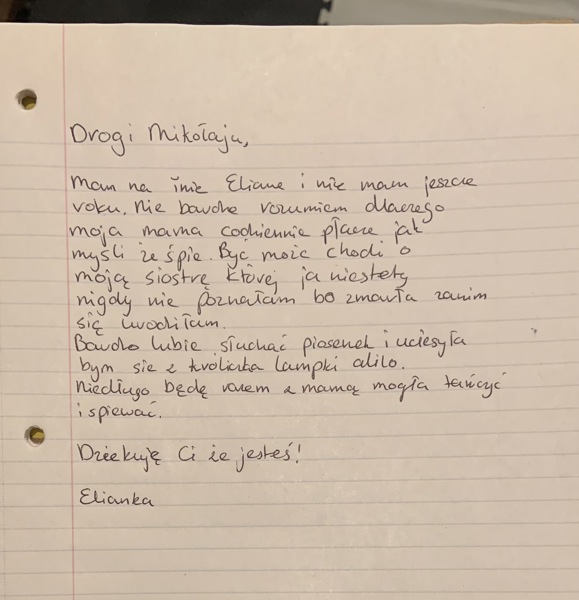 Drogi Mikołaju,
Mam na imie Eliane i nie mam jeszcze
roku. Nie bardzo rozumiem dlaczego
moja mama codziennie płacze jak
myśli że śpie. Być może chodi o
moją siostrę której ja niestety
nigdy nie poznałam bo zmarła zanim
się urodziłam.
Bardzo lubie słuchać piosenek i uciesyła
bym sie z króliczka lampki alilo.
Niedługo będę razem z mamą mogła tańczyć
i spiewać.
Dziekuję Ci że jesteś!
Elianka